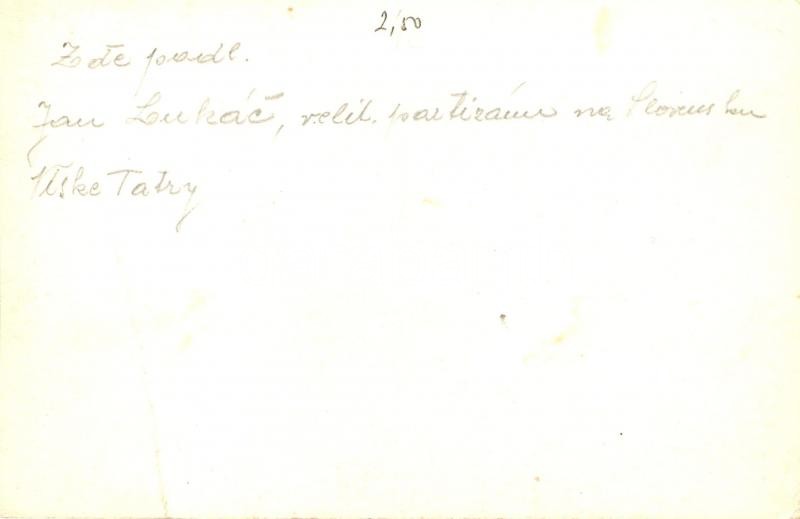 2,50
Zde padl.
Jan Lukáč, velit. partizánů na Slovensku
Nízke Tatry